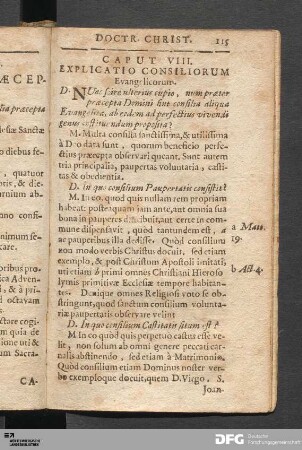 DOCTR. CHRIST. 115
CAPUT VIII.
EXPLICATIO CONSILIORUM
Evangelicorum.
D. NUnc scire ulterius cupio, num præter
præcepta Domini sint consilia aliqua
Evangelica, ab eodem ad perfectius vivendi
genus instituendum proposita?
M. Multa consilia sanctissima, & utilissima
à Deo data sunt, quorum beneficio perfe-
ctius præcepta observari queant. Sunt autem
tria principalia, paupertas voluntaria, casti-
tas & obedientia.
D. In quo consilium Paupertatis consistit?
M. In eo, quod quis nullam rem propriam
habeat: posteaquam jam ante, aut omnia sua
bona in pauperes distribuisset, certe in com-
mune dispensavit, quod tantundem est, a
ac pauperibus illa dedisse. Quod consilium
non modo verbis Christus docuit, sed etiam
exemplo, & post Christum Apostoli imitati,
uti etiam b primi omnes Christiani Hieroso-
lymis primitivæ Ecclesiæ tempore habitan-
tes. Denique omnes Religiosi voto se ob-
stringunt, quod sanctum consilium volunta-
riæ paupertatis observare velint
D. In quo consilium Castitatis situm est?
M. In eo quod quis perpetuo castus esse ve-
lit, non solum ab omni genere peccati car-
nalis abstinendo, sed etiam à Matrimonio.
Quod consilium etiam Dominus noster ver-
bo exemploque docuit, quem D. Virgo, S.
Joan-
a Mat.
19.
b Act. 4.
ÆCEP-
præcepta
Sanctæ
diebus se-
quatuor
CA-
DFG
Deutsche
Forschungsgemeinschaft